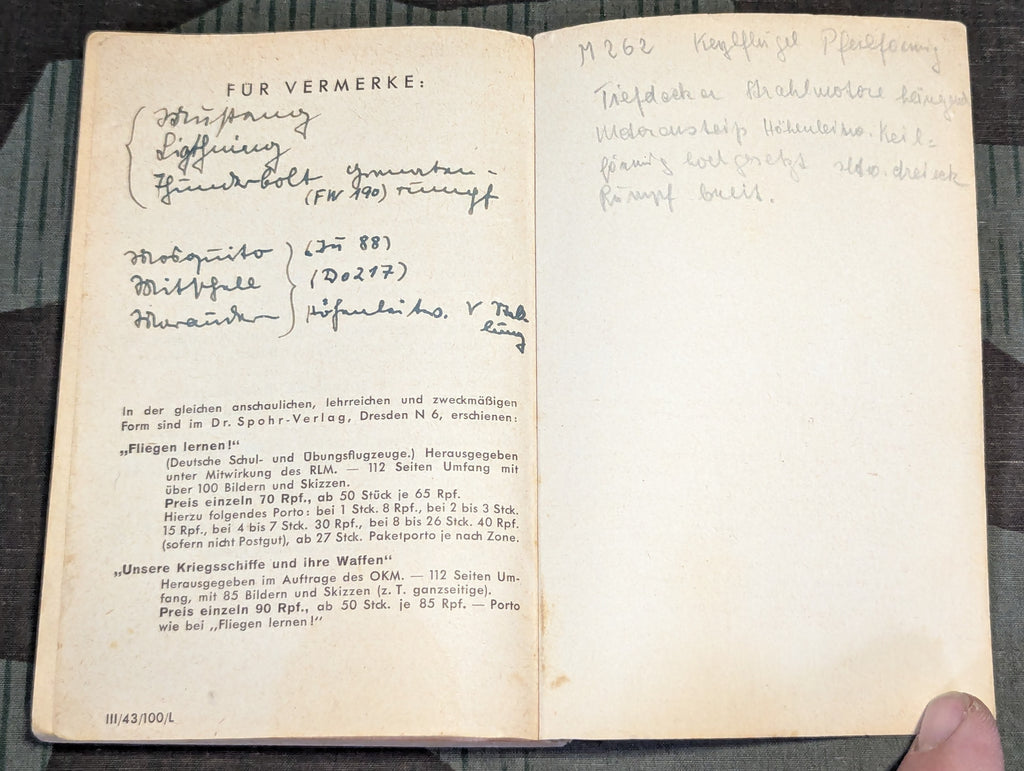 FÜR VERMERKE:
Mustang
Ligthning
Thunderbolt Granaten-
(FW 190) rumpf
Mosquito (Ju 88)
Mitschell (Do217)
Marauder Höhenleitw. V
lung
In der gleichen anschaulichen, lehrreichen und zweckmäßigen
Form sind im Dr. Spohr-Verlag, Dresden N 6, erschienen:
„Fliegen lernen!“
(Deutsche Schul- und Übungsflugzeuge.) Herausgegeben
unter Mitwirkung des RLM. — 112 Seiten Umfang mit
über 100 Bildern und Skizzen.
Preis einzeln 70 Rpf., ab 50 Stück je 65 Rpf.
Hierzu folgendes Porto: bei 1 Stck. 8 Rpf., bei 2 bis 3 Stck.
15 Rpf., bei 4 bis 7 Stck. 30 Rpf., bei 8 bis 26 Stck. 40 Rpf.
(sofern nicht Postgut), ab 27 Stck. Paketporto je nach Zone.
„Unsere Kriegsschiffe und ihre Waffen“
Herausgegeben im Auftrage des OKM. — 112 Seiten Um-
fang, mit 85 Bildern und Skizzen (z. T. ganzseitige).
Preis einzeln 90 Rpf., ab 50 Stck. je 85 Rpf. — Porto
wie bei „Fliegen lernen!“
III/43/100/L
M 262 Pfeilförmig
Tiefdecker Strahlmotore
Höhenleitw. Keil=
förmig hochgesetzt dreieck
Rumpf breit.